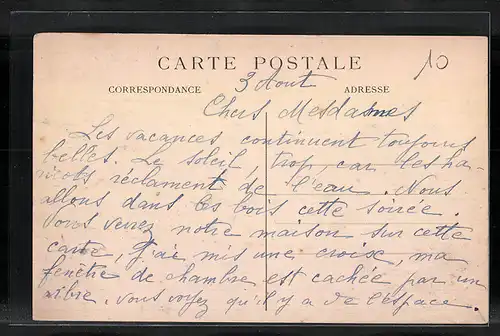 CARTE POSTALE
10
CORRESPONDANCE
ADRESSE
3 Aout
Chers Mesdames
Les vacances continuent toujours
belles. Le soleil, trop car les ha-
ricots réclament de l'eau. Nous
allons dans les bois cette soirée.
Vous verrez notre maison sur cette
carte, j'ai mis une croix, ma
fenêtre de chambre est cachée par un
arbre. Vous voyez qu'il y a de l'espace.